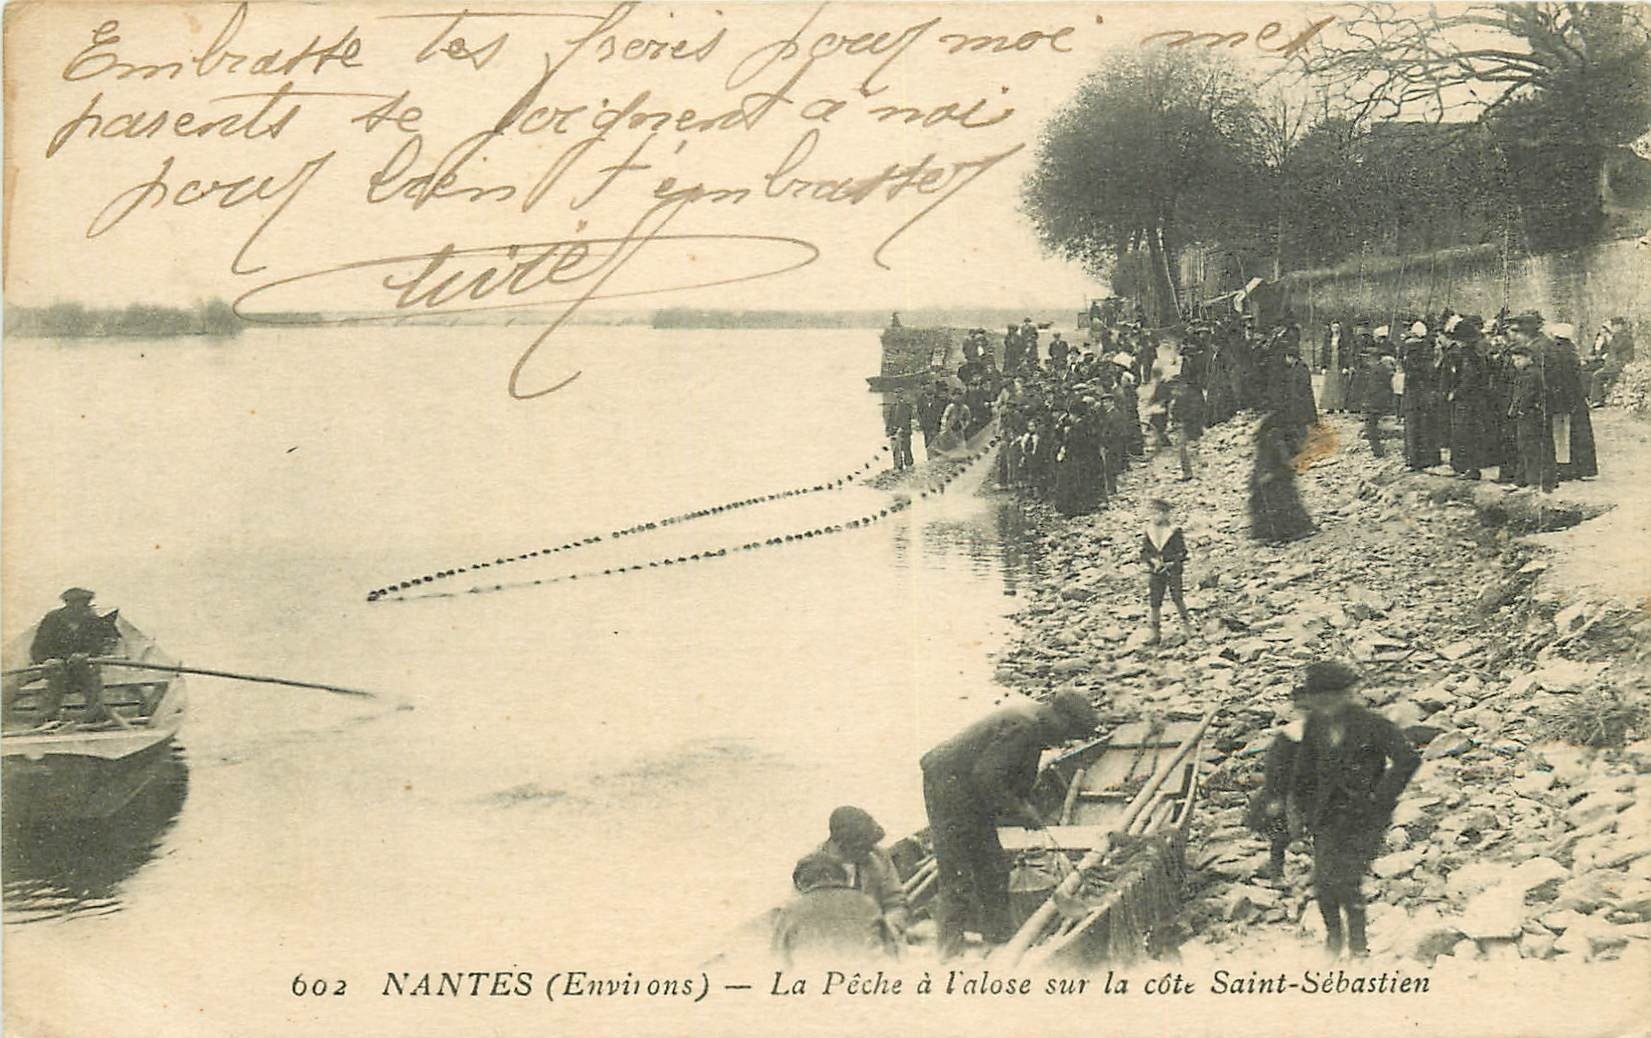 Embrasse tes frères pour moi mes
parents se joignent à moi
pour bien t'embrasser
602 NANTES (Environs) — La Pêche à l'alose sur la côte Saint-Sébastien